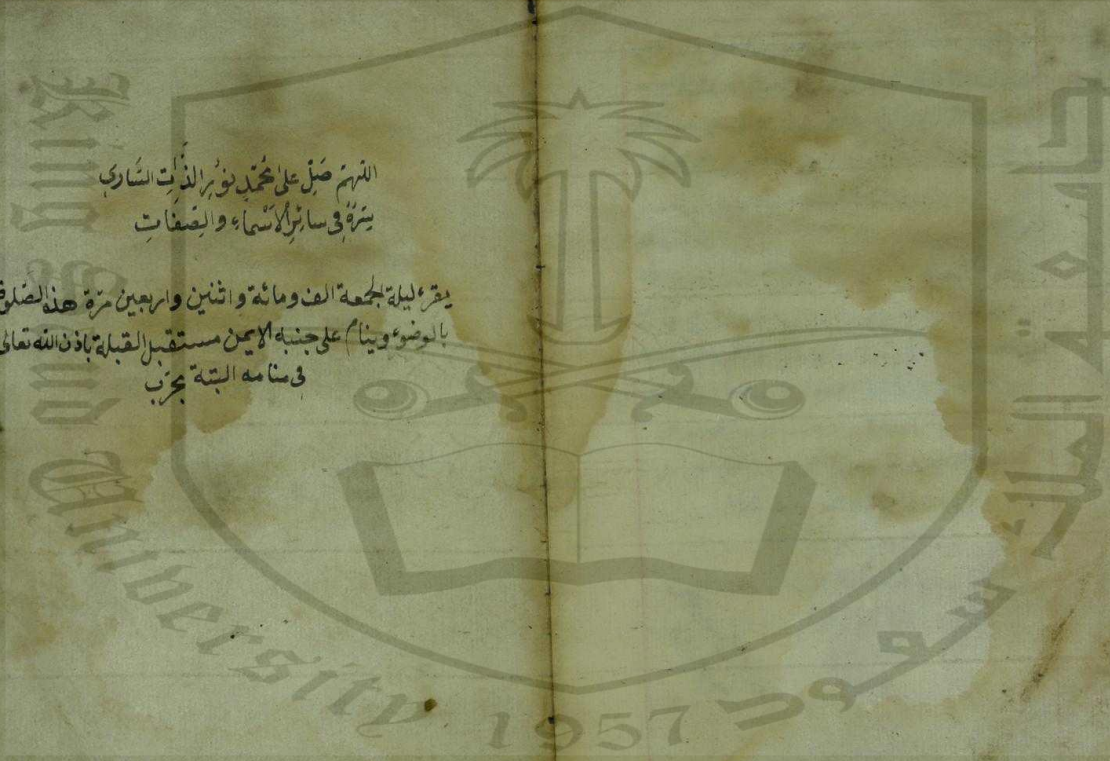 اللهم صَلِّ على مُحَمَّدٍ نوُرِ الذَّاتِ السَّارِي
سِرّهُ فى سائِرِ الاَسْمَاءِ والصِفَاتِ
يقرء ليلة الجمعة الف ومائة واثنين واربعين مرّة هذه الصلوة
بالوضوء وينام على جنبه الايمن مستقبل القبلة باذن الله تعالى
فى منامه البتة مجرّب
جامعة الملك سعود
King Saud University 1957